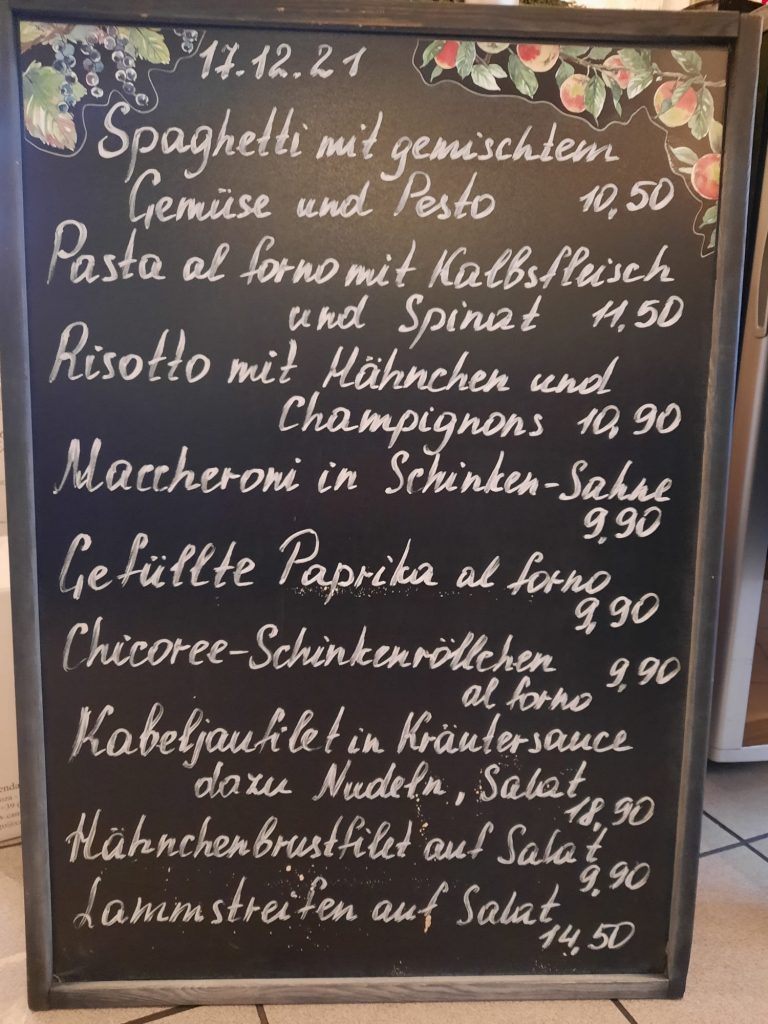 17.12.21
Spaghetti mit gemischtem
Gemüse und Pesto 10,50
Pasta al forno mit Kalbsfleisch
und Spinat 11,50
Risotto mit Hähnchen und
Champignons 10,90
Maccheroni in Schinken-Sahne
9,90
Gefüllte Paprika al forno
9,90
Chicoree-Schinkenröllchen 9,90
al forno
Kabeljaufilet in Kräutersauce
dazu Nudeln, Salat
18,90
Hähnchenbrustfilet auf Salat
9,90
Lammstreifen auf Salat
14,50